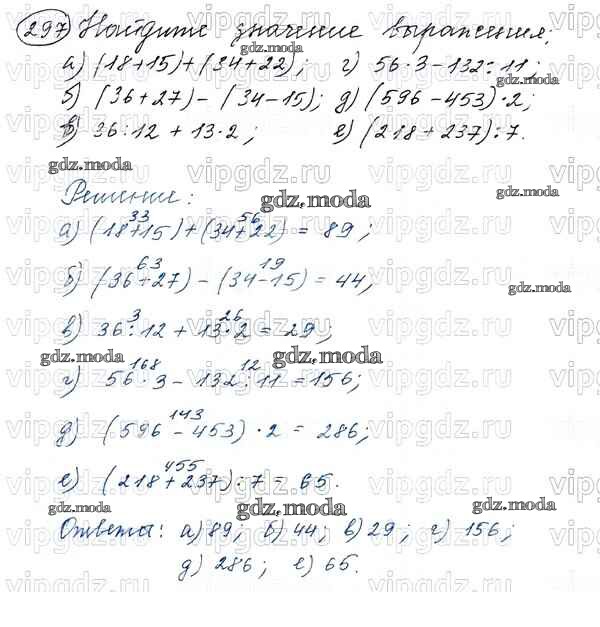 297 Найдите значение выражения:
а) (18+15)+(34+22); г) 56·3-132:11;
б) (36+27)-(34-15); д) (596-453)·2;
в) 36:12+13·2; е) (218+237):7.
Решение:
33 56
а) (18+15)+(34+22) = 89;
63 19
б) (36+27)-(34-15) = 44;
3 26
в) 36:12+13·2 = 29;
168 12
г) 56·3-132:11 = 156;
143
д) (596-453)·2 = 286;
455
е) (218+237):7 = 65.
Ответа: а) 89; б) 44; в) 29; г) 156;
д) 286; е) 65.
gdz.moda
vipgdz.ru